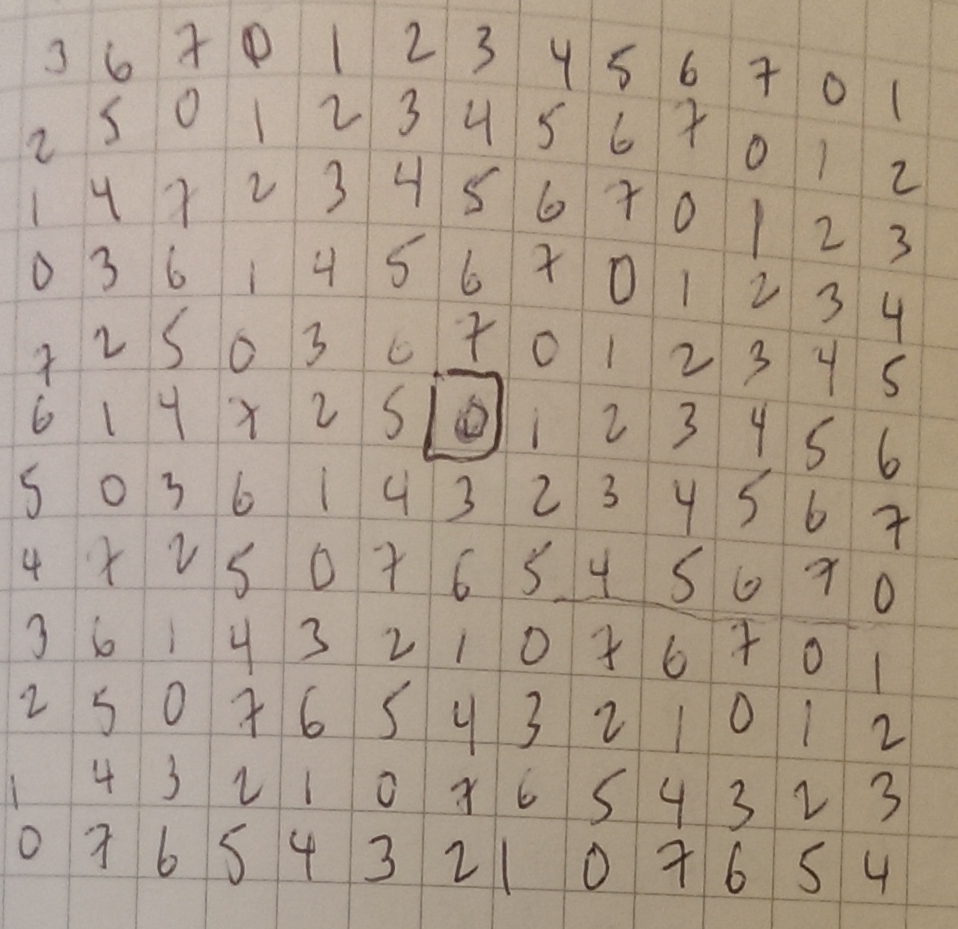 3 6 7 0 1 2 3 4 5 6 7 0 1
2 5 0 1 2 3 4 5 6 7 0 1 2
1 4 7 2 3 4 5 6 7 0 1 2 3
0 3 6 1 4 5 6 7 0 1 2 3 4
7 2 5 0 3 6 7 0 1 2 3 4 5
6 1 4 7 2 5 0 1 2 3 4 5 6
5 0 3 6 1 4 3 2 3 4 5 6 7
4 7 2 5 0 7 6 5 4 5 6 7 0
3 6 1 4 3 2 1 0 7 6 7 0 1
2 5 0 7 6 5 4 3 2 1 0 1 2
1 4 3 2 1 0 7 6 5 4 3 2 3
0 7 6 5 4 3 2 1 0 7 6 5 4